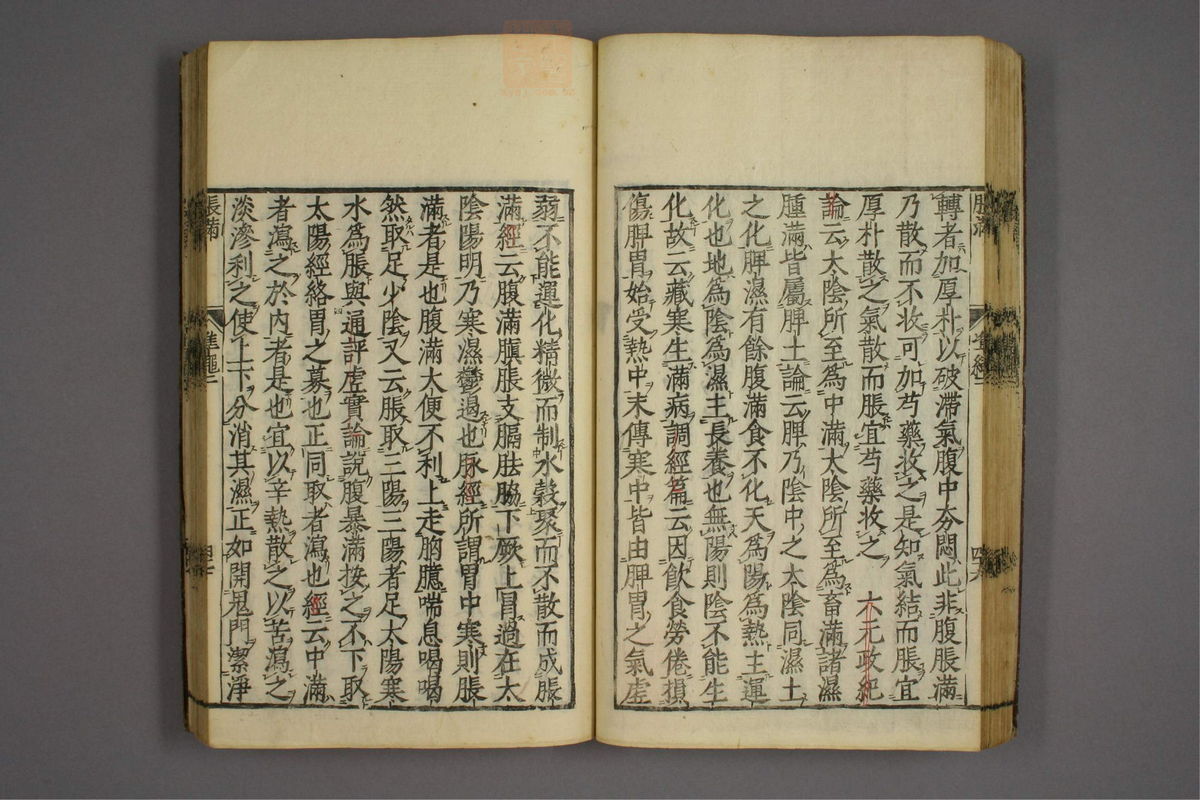 轉者加厚朴以破滯氣腹中夯悶此非腹脹滿
乃散而不收可加芍藥收之是知氣結而脹宜
厚朴散之氣散而脹宜芍藥收之　六元政紀
論云太陰所至爲中滿太陰所至爲畜滿諸濕
腫滿皆屬脾土論云脾乃陰中之太陰同濕土
之化脾濕有餘腹滿食不化天爲陽爲熱主運
化也地爲陰爲濕主長養也無陽則陰不能生
化故云藏寒生滿病調經篇云因飲食勞倦損
傷脾胃始受熱中末傳寒中皆由脾胃之氣虛
弱不能運化精微而制水穀聚而不散而成脹
滿經云腹滿䐜脹支膈胠脇下厥上冒過在太
陰陽明乃寒濕鬱遏也脉經所謂胃中寒則脹
滿者是也腹滿大便不利上走胸臆喘息喝喝
然取足少陰又云脹取三陽三陽者足太陽寒
水爲脹與通評虛實論說腹暴滿按之不下取
太陽經絡胃之募也正同取者瀉也經云中滿
者瀉之於內者是也宜以辛熱散之以苦瀉之
淡滲利之使上下分消其濕正如開鬼門潔淨
脹滿